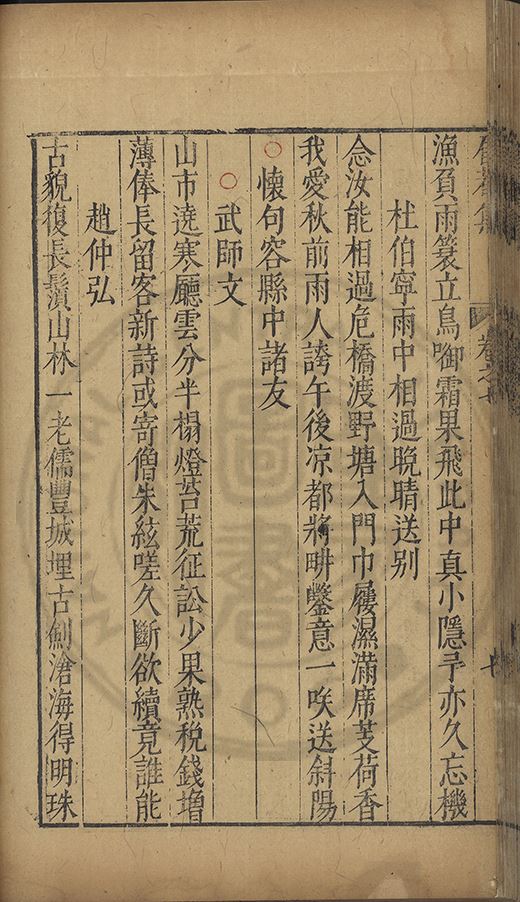 漁負雨簑立鳥啣霜果飛此中真小隱予亦久忘機
杜伯寧雨中相過晩晴送别
念汝能相過危橋渡野塘入門巾屨濕滿席芰荷香
我愛秋前雨人誇午後凉都將畊鑿意一咲送斜陽
○懷句容縣中諸友
○武師文
山市遶寒廳雲分半榻燈苔荒征訟少果熟税錢增
薄俸長留客新詩或寄僧朱絃嗟久斷欲續竟誰能
趙仲弘
古貌復長鬚山林一老儒豐城埋古劍滄海得明珠